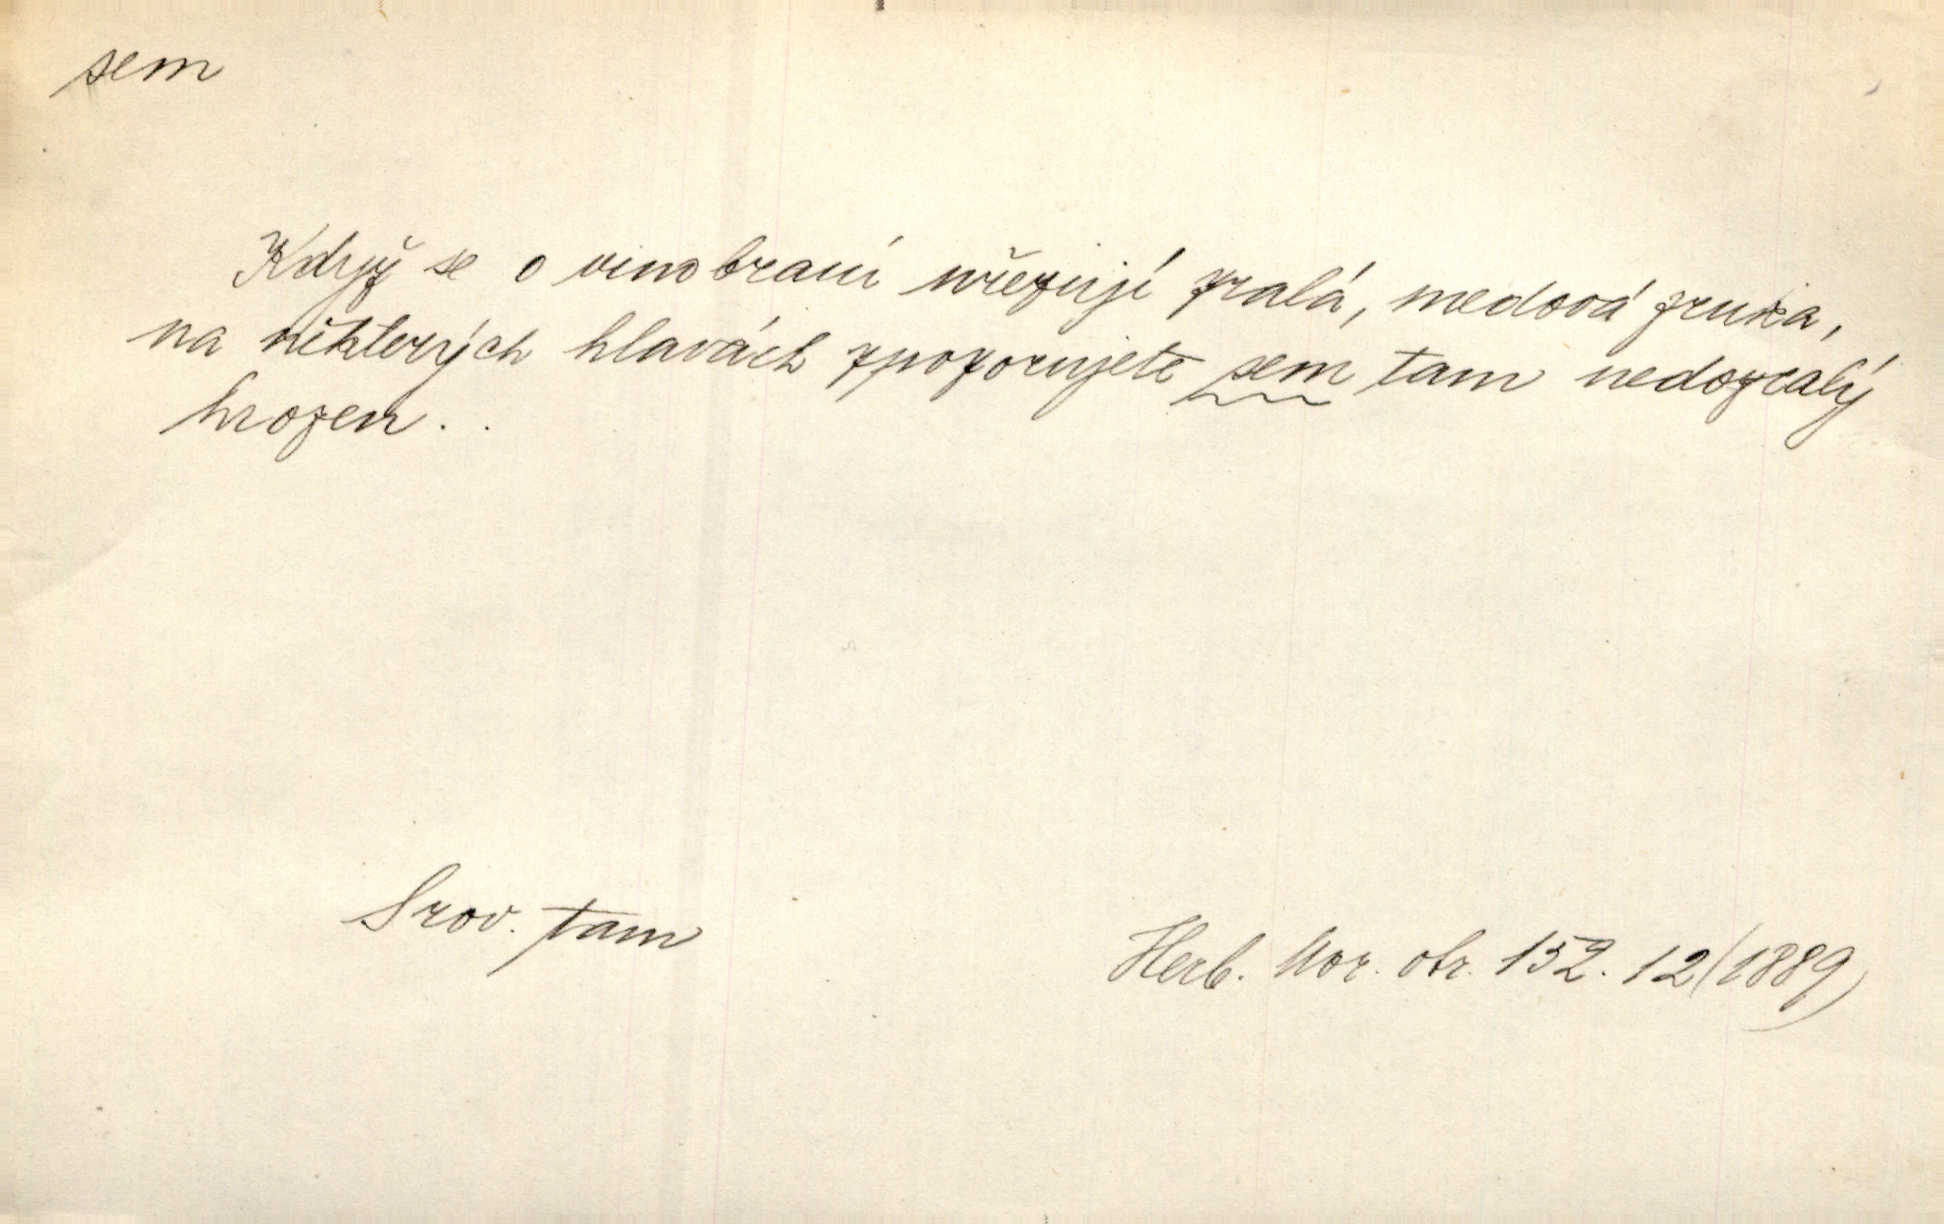 sem
Když se o vinobraní uřezují zralá, medová zrnka,
na některých hlavách zpozorujete sem tam nedozralý
hrozen..
Srov. tam
Herb. Mor. obr. 152. 12 (1889)